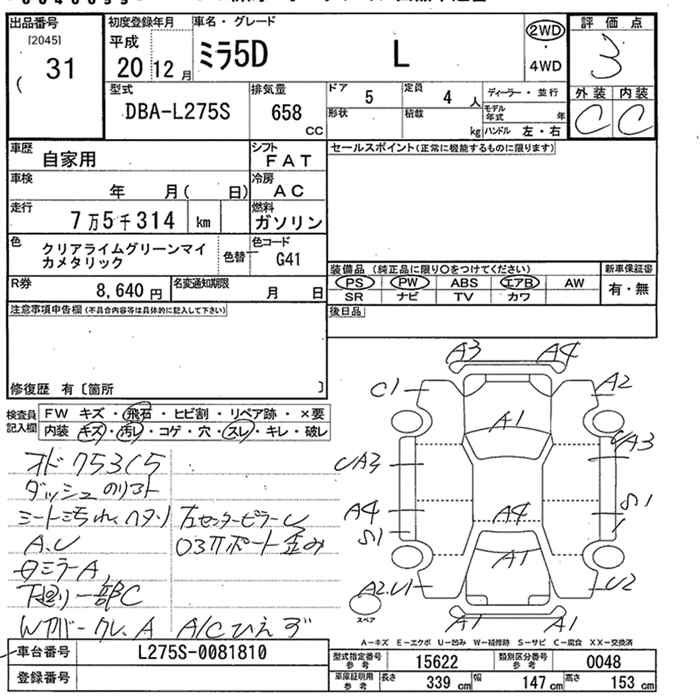 出品番号
[2045]
31
初度登録年月
平成
20 12 月
車名・グレード
ミラ5D L
2WD
・
4WD
評価点
3
型式
DBA-L275S
排気量
658
CC
ドア
5
定員
4 人
ディーラー・並行
形状
積載
kg
モデル年式
年
ハンドル 左・右
外装 内装
C C
車歴
自家用
シフト
FAT
セールスポイント(正常に機能するものに限ります)
車検
年 月( 日)
冷房
AC
走行
7万5千314 km
燃料
ガソリン
色
クリアライムグリーンマイ
カメタリック
色替
色コード
G41
装備品 (純正品に限り○をつけてください)
新車保証書
PS PW ABS エアB AW
SR ナビ TV カワ
有・無
R券
8,640 円
名変通知期限
月 日
後日品
注意事項申告欄(不具合内容等は具体的に記入して下さい)
修復歴 有〔箇所 〕
検査員
記入欄
FW キズ・飛石・ヒビ割・リペア跡・×要
内装 キズ・汚レ・コゲ・穴・スレ・キレ・破レ
オド 75315
ダッシュ のりあと
シート汚れ ヘタリ
A.U
左センターピラーU
ミラーA
下廻り一部C
A
A/C ひえず
A3
A4
C1
A2
A1
A3
A4
S1
A4
S1
A1
A2.U1
U2
スペア
A1
A1
A-キズ E-エクボ U-凹み W-補修跡 S-サビ C-腐食 XX-交換済
車台番号
L275S-0081810
登録番号
型式指定番号
参考
15622
類別区分番号
参考
0048
車庫証明用
参考
長さ
339 cm
幅
147 cm
高さ
153 cm